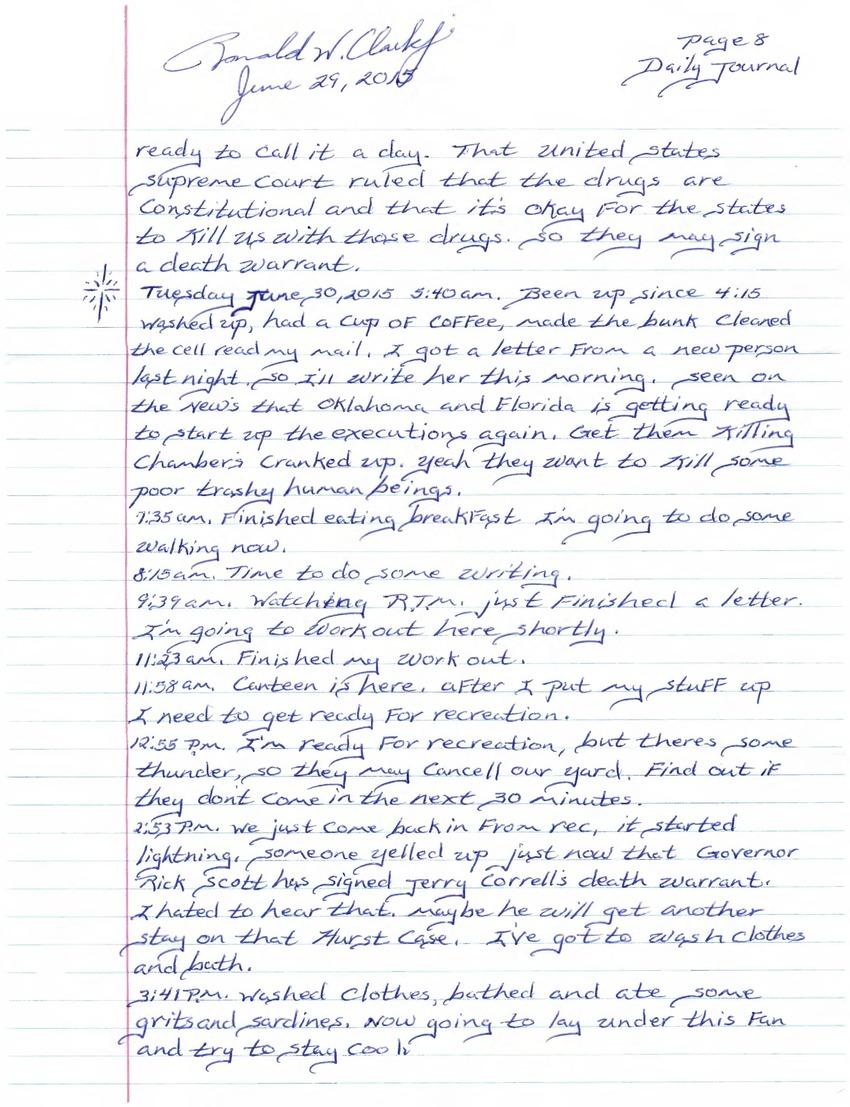 Ronald W. Clark Jr
June 29, 2015
Page 8
Daily Journal
ready to call it a day. That united states
supreme court ruled that the drugs are
Constitutional and that it's okay For the states
to Kill us with those drugs. so they may sign
a death warrant.
Tuesday June 30, 2015 5:40am. Been up since 4:15
washed up, had a cup OF COFFee, made the bunk cleaned
the cell read my mail. I got a letter From a new person
last night. so I'll write her this morning. seen on
the New's that Oklahoma and Florida is getting ready
to start up the executions again. Get them Killing
Chamber's Cranked up. yeah they want to Kill some
poor trashy human beings.
7:35am. Finished eating breakFast I'm going to do some
walking now.
8:15am. Time to do some writing.
9:39am. Watching R.T.M. just Finished a letter.
I'm going to workout here shortly.
11:23am. Finished my work out.
11:58am. Canteen is here. aFter I put my stuFF up
I need to get ready For recreation.
12:55 P.M. I'm ready For recreation, but theres some
thunder, so they may Cancell our yard. Find out iF
they don't come in the next 30 minutes.
2:53 P.M. we just come back in From rec, it started
lightning. someone yelled up just now that Governor
Rick Scott has signed Jerry Correll's death warrant.
I hated to hear that. maybe he will get another
stay on that Hurst Case. I've got to wash clothes
and bath.
3:41 P.M. washed clothes, bathed and ate some
grits and sardines. Now going to lay under this Fan
and try to stay cool.